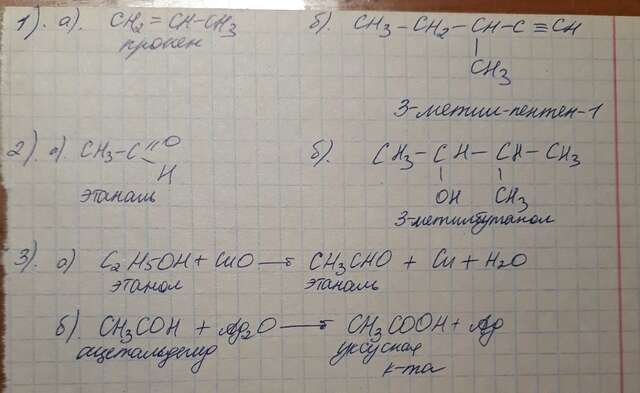 1). а). CH2 = CH-CH3 б). CH3 - CH2 - CH - C ≡ CH
пропен CH3
3-метил-пентен-1
2). а). CH3 - C =O H б). CH3 - CH - CH - CH3
этаналь OH CH3
3-метилбутанол
3). а) C2H5OH + CuO → CH3CHO + Cu + H2O
этанол этаналь
б) CH3COH + Ag2O → CH3COOH + Ag
ацетальдегид уксусная
к-та